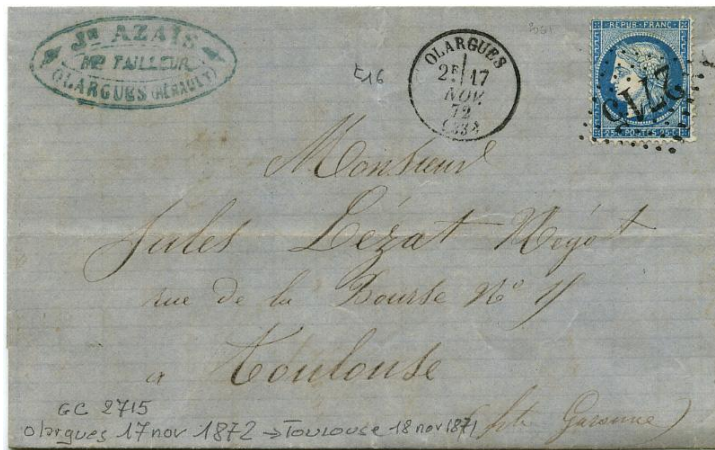 Jn AZAÏS
Md TAILLEUR
OLARGUES (HÉRAULT)
£16
OLARGUES
2E 17
NOV.
72
(33)
REPUB. FRANC.
2715
25 POSTES 25
Monsieur
Jules Lézat Négot
rue de la Bourse No
a Toulouse
(Hte Garonne)
GC 2715
Olargues 17 nov 1872 → Toulouse 18 nov 1871